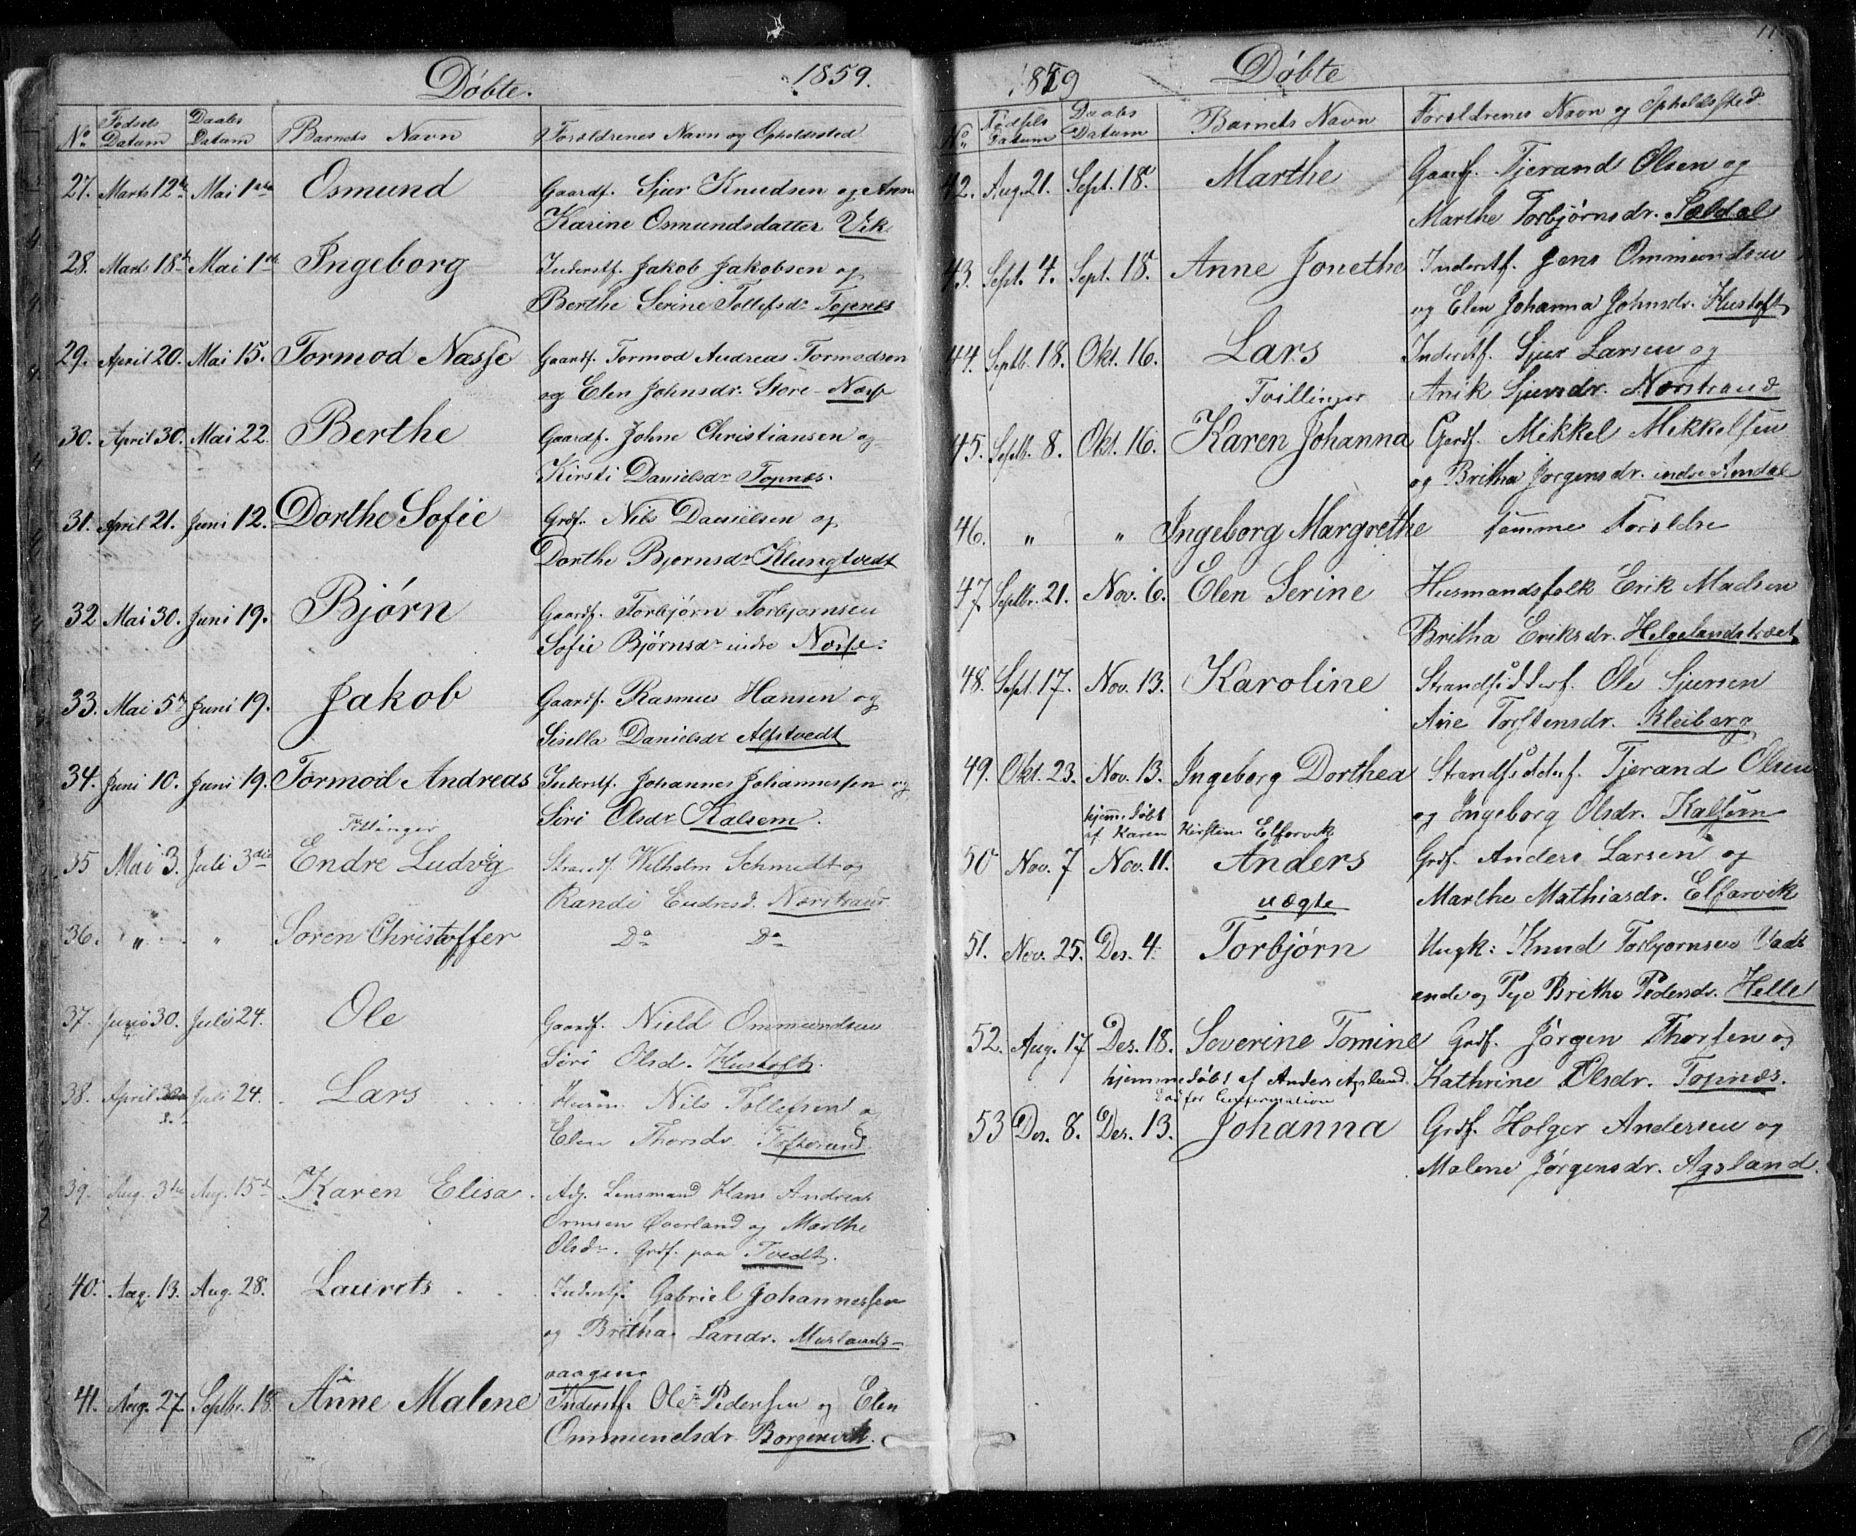 Døbte. 1859.
No Fødsels Datum Daabs Datum Barnets Navn Forældrenes Navn og Opholdssted
27. Marts 12te Mai 1ste Osmund Gaardf. Sjur Knudsen og Anne
Karine Osmundsdatter Vik
28. Marts 18de Mai 1ste Ingeborg Inderstf. Jakob Jakobsen og
Berthe Serine Tollefsdr Topnes
29. April 20. Mai 15. Tormod Næsse Gaardf. Tormod Andreas Tormodsen
og Elen Johnsdr. Store-Næsse
30. April 30. Mai 22. Berthe Gaardf. John Christiansen og
Kirsti Danielsdr Topnæs.
31. April 21. Juni 12. Dorthe Sofie Grdf. Nils Danielsen og
Dorthe Bjørnsdr Klungtvedt
32 Mai 30. Juni 19. Bjørn Gaardf. Torbjørn Torbjørnsen
Sofie Bjørnsdr indre Næsse.
33. Mai 5te Juni 19. Jakob Gaardf. Rasmus Hansen og
Sisella Danielsdr Alfstvedt
34. Juni 10. Juni 19. Tormod Andreas Inderstf. Johannes Johannessen og
Siri Olsdr Kalsem.
Tvillinger
35 Mai 3. Juli 3die Endre Ludvig Strandf. Wilhelm Schmidt og
Randi Endresd. Nærstrand
36. " " Søren Christoffer Do Do
37. Juni 30. Juli 24. Ole Gaardf. Nield Ommundsen
Siri Olsd. Hustoft.
38. April Juli 24. Lars Husm. Nils Tollefsen og
Elen Thorsdr. Tofterand.
39. Aug. 3die Aug. 15de Karen Elisa. Adj. Lensmand Hans Andreas
Ormsen Øverland og Marthe
Olsdr. Grdf. paa Tvedt.
40. Aug. 13. Aug. 28. Laurets Inderstf. Gabriel Johannessen
og Britha Landr. Marlands-
vaagene
41. Aug. 27. Septbr. 18. Anne Malene Inderstf. Ole Pedersen og Elen
Ommundsdr. Borgenvik.
1859 Døbte
No Fødsels Datum Daabs Datum Barnets Navn Forældrenes Navn og Opholdssted
42. Aug. 21. Sept. 18. Marthe Gaardf. Tjerand Olsen og
Marthe Torbjørnsdr. Sældal
43. Sept. 4. Sept. 18. Anne Jonethe Inderstf. Jens Ommundsen
og Elen Johanna Johnsdr. Hustoft
44. Septb. 18. Okt. 16. Lars Inderstf. Sjur Larsen og
Tvillinger Anik Sjursdr. Nærstrand
45. Septb. 8. Okt. 16. Karen Johanna Gardf. Mikkel Mikkelsen
og Britha Jørgensdr. indre Amdal
46. " " Ingeborg Margrethe samme Forældre
47 Septbr. 21. Nov. 6. Elen Serine Husmandsfolk Erik Madsen
Britha Eriksdr. Helgelandstræet
48. Sept. 17. Nov. 13. Karoline Strandsidderf. Ole Sjursen
Ane Torstensdr. Kleiberg
49. Okt. 23. Nov. 13. Ingeborg Dorthea Strandsidderf. Tjerand Olsen
og Ingeborg Olsdr. Kalsem
hjemmedøbt
af Karen Kirstine Elfarvik
50 Nov. 7 Nov. 11. Anders Grdf. Anders Larsen og
Marthe Mathiasdr. Elfarvik
uægte
51. Nov. 25. Des. 4. Torbjørn Ungk: Knud Torbjørnsen Vads
ende og Pige Brithe Pedersdr. Helle
52. Aug. 17 Des. 18. Severine Tomine Grdf. Jørgen Thorsen og
Kathrine Olsdr. Topnæs.
hjemmedøbt af Anders Apeland
Død før Confirmation
53 Des. 8. Des. 13. Johanna Grdf. Holger Andersen og
Malene Jørgensdr. Apeland.